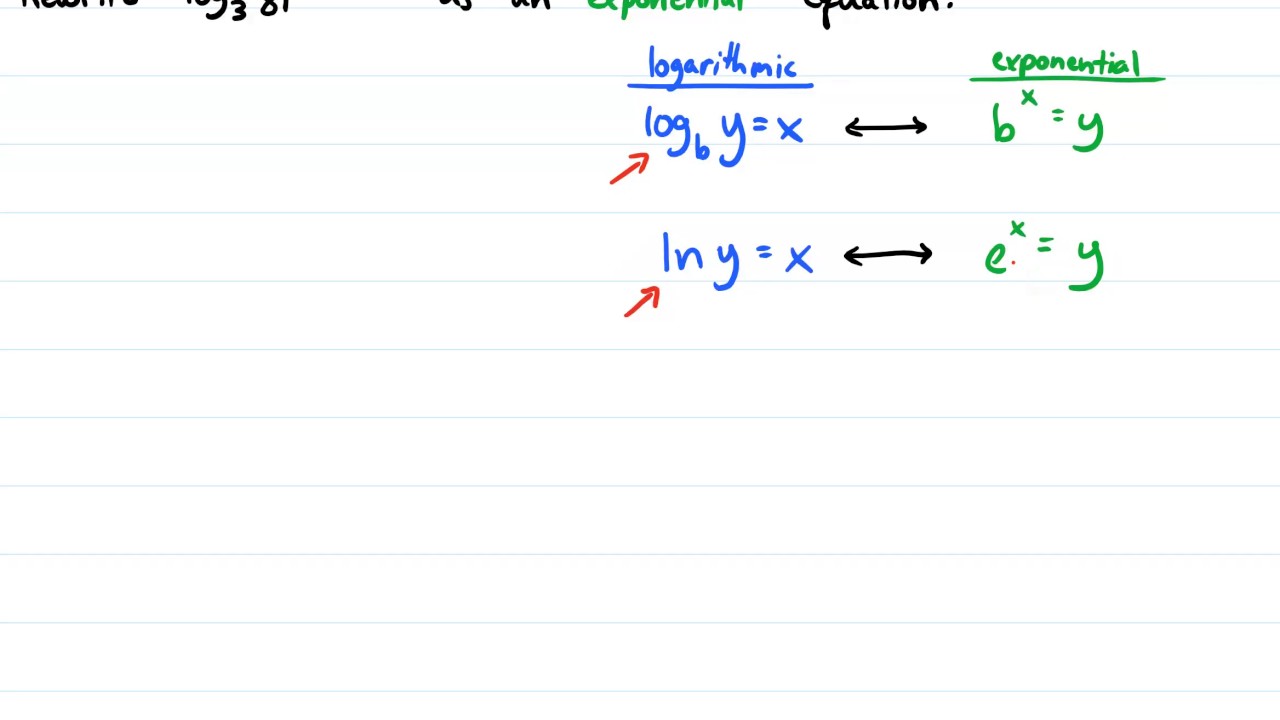 Rewrite log₃ 81 as an exponential equation.
logarithmic exponential
log_b y = x ⟷ b^x = y
ln y = x ⟷ e^x = y